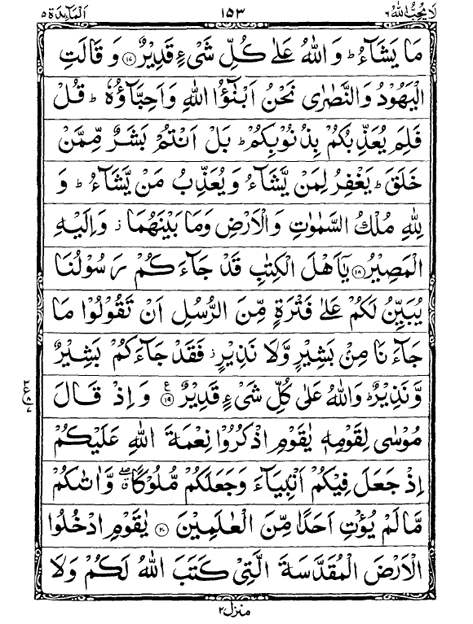 لَا يُحِبُّ اللّٰه ٦ ١٥٣ اَلْمَآئِدَة ٥
مَا يَشَآءُ ؕ وَ اللّٰهُ عَلٰى كُلِّ شَىْءٍ قَدِيْرٌ ﴿۱۷﴾ وَ قَالَتِ
الْيَهُوْدُ وَ النَّصٰرٰى نَحْنُ اَبْنٰٓؤُا اللّٰهِ وَ اَحِبَّآؤُهٗ ؕ قُلْ
فَلِمَ يُعَذِّبُكُمْ بِذُنُوْبِكُمْ ؕ بَلْ اَنْتُمْ بَشَرٌ مِّمَّنْ
خَلَقَ ؕ يَغْفِرُ لِمَنْ يَّشَآءُ وَ يُعَذِّبُ مَنْ يَّشَآءُ ؕ وَ
لِلّٰهِ مُلْكُ السَّمٰوٰتِ وَ الْاَرْضِ وَ مَا بَيْنَهُمَا ۫ وَ اِلَيْهِ
الْمَصِيْرُ ﴿۱۸﴾ يٰۤاَهْلَ الْكِتٰبِ قَدْ جَآءَكُمْ رَسُوْلُنَا
يُبَيِّنُ لَكُمْ عَلٰى فَتْرَةٍ مِّنَ الرُّسُلِ اَنْ تَقُوْلُوْا مَا
جَآءَنَا مِنْۢ بَشِيْرٍ وَّ لَا نَذِيْرٍ ۫ فَقَدْ جَآءَكُمْ بَشِيْرٌ
وَّ نَذِيْرٌ ؕ وَ اللّٰهُ عَلٰى كُلِّ شَىْءٍ قَدِيْرٌ ﴿۱۹﴾ ع وَ اِذْ قَالَ
مُوْسٰى لِقَوْمِهٖ يٰقَوْمِ اذْكُرُوْا نِعْمَةَ اللّٰهِ عَلَيْكُمْ
اِذْ جَعَلَ فِيْكُمْ اَنْۢبِيَآءَ وَ جَعَلَكُمْ مُّلُوْكًا ۖۗ وَّ اٰتٰىكُمْ
مَّا لَمْ يُؤْتِ اَحَدًا مِّنَ الْعٰلَمِيْنَ ﴿۲۰﴾ يٰقَوْمِ ادْخُلُوا
الْاَرْضَ الْمُقَدَّسَةَ الَّتِىْ كَتَبَ اللّٰهُ لَكُمْ وَ لَا
منزل ٢